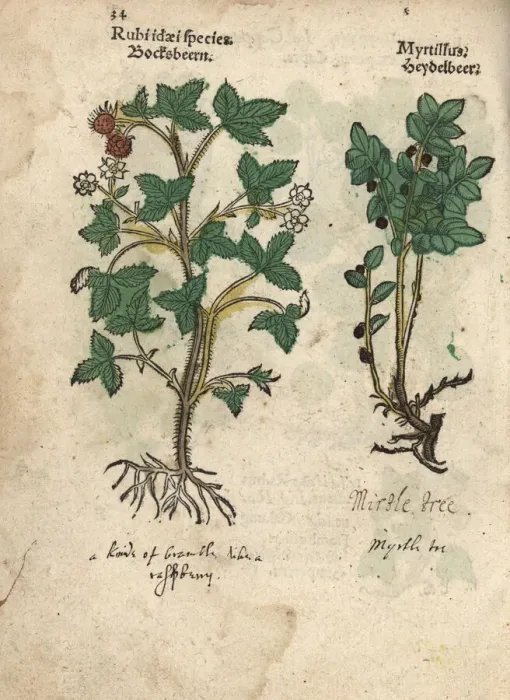 34
Rubi idæi species.
Bocksbeern.
Myrtillus.
Heydelbeer.
Mirtle tree.
Myrtle tre
a kinde of bramble like a
raspberry.